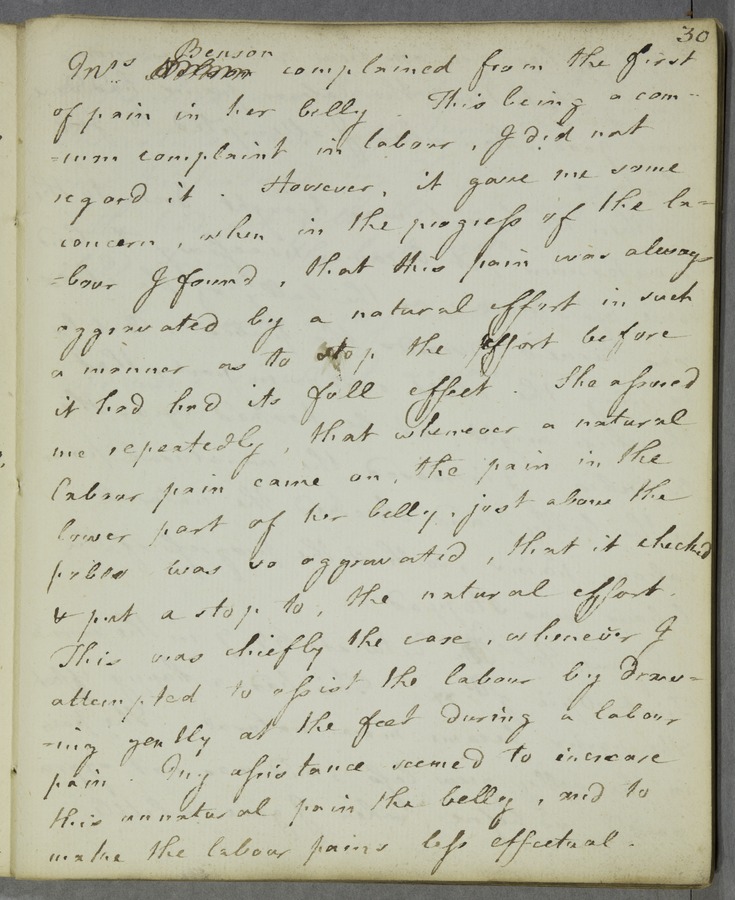 30
Benson
Mrs complained from the first
of pain in her belly. This being a com-
=mon complaint in labour, I did not
regard it. However, it gave me some
concern, when in the progress of the la=
=bour I found, that this pain was always
aggravated by a natural effort in such
a manner as to stop the effort before
it had had its full effect. She assured
me repeatedly, that whenever a natural
labour pain came on, the pain in the
lower part of her belly, just above the
pubes was so aggravated, that it checked
& put a stop to, the natural effort.
This was chiefly the case, whenever I
attempted to assist the labour by draw=
=ing gently at the feet during a labour
pain. My assistance seemed to increase
this unnatural pain the belly, and to
make the labour pains less effectual.